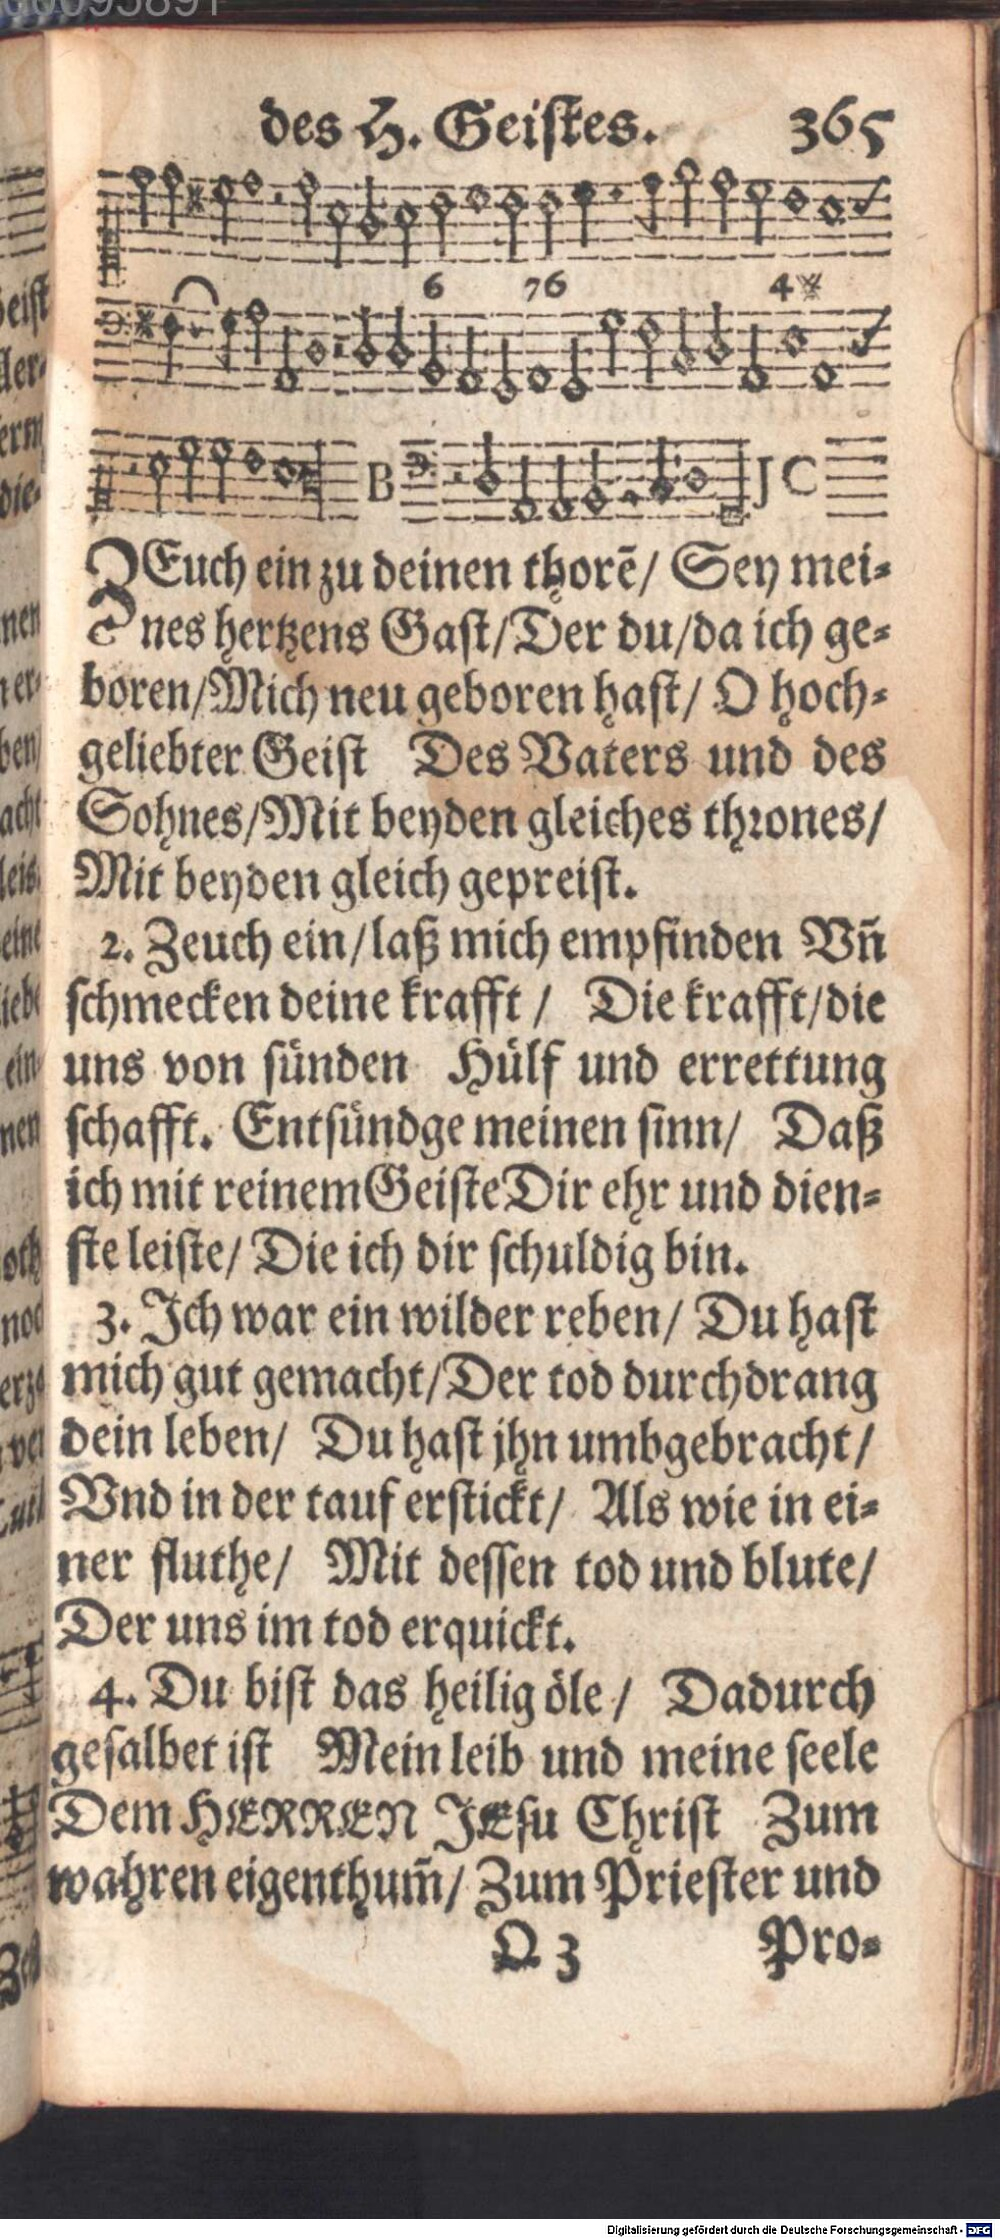 des H. Geistes. 365
6 76 4
B J C
ZEuch ein zu deinen thorē/ Sey mei-
nes hertzens Gast/Der du/da ich ge-
boren/Mich neu geboren hast/ O hoch-
geliebter Geist Des Vaters und des
Sohnes/Mit beyden gleiches thrones/
Mit beyden gleich gepreist.
2. Zeuch ein/laß mich empfinden Vn̄
schmecken deine krafft / Die krafft/die
uns von sünden Hülf und errettung
schafft. Entsündge meinen sinn/ Daß
ich mit reinem Geiste Dir ehr und dien-
ste leiste/ Die ich dir schuldig bin.
3. Ich war ein wilder reben/ Du hast
mich gut gemacht/Der tod durchdrang
dein leben/ Du hast jhn umbgebracht/
Vnd in der tauf erstickt/ Als wie in ei-
ner fluthe/ Mit dessen tod und blute/
Der uns im tod erquickt.
4. Du bist das heilig öle/ Dadurch
gesalbet ist Mein leib und meine seele
Dem HERREN JEsu Christ Zum
wahren eigenthum̄/ Zum Priester und
Q 3 Pro-
Digitalisierung gefördert durch die Deutsche Forschungsgemeinschaft - DFG